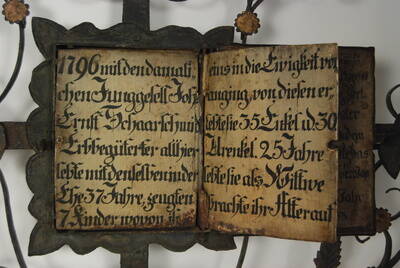 1796 mit den damali
chen Junggesell Joh
Ernst Schaarschmid
Erbbegüterter allhier
lebte mit denselben in der
Ehe 37 Jahre, zeugten
7 Kinder wovon ih
eins in die Ewigkeit vor
anging, von diesen er
lebte sie 35 Enkel u. 30
Urenkel. 25 Jahre
lebte sie als Wittwe
brachte ihr Alter auf